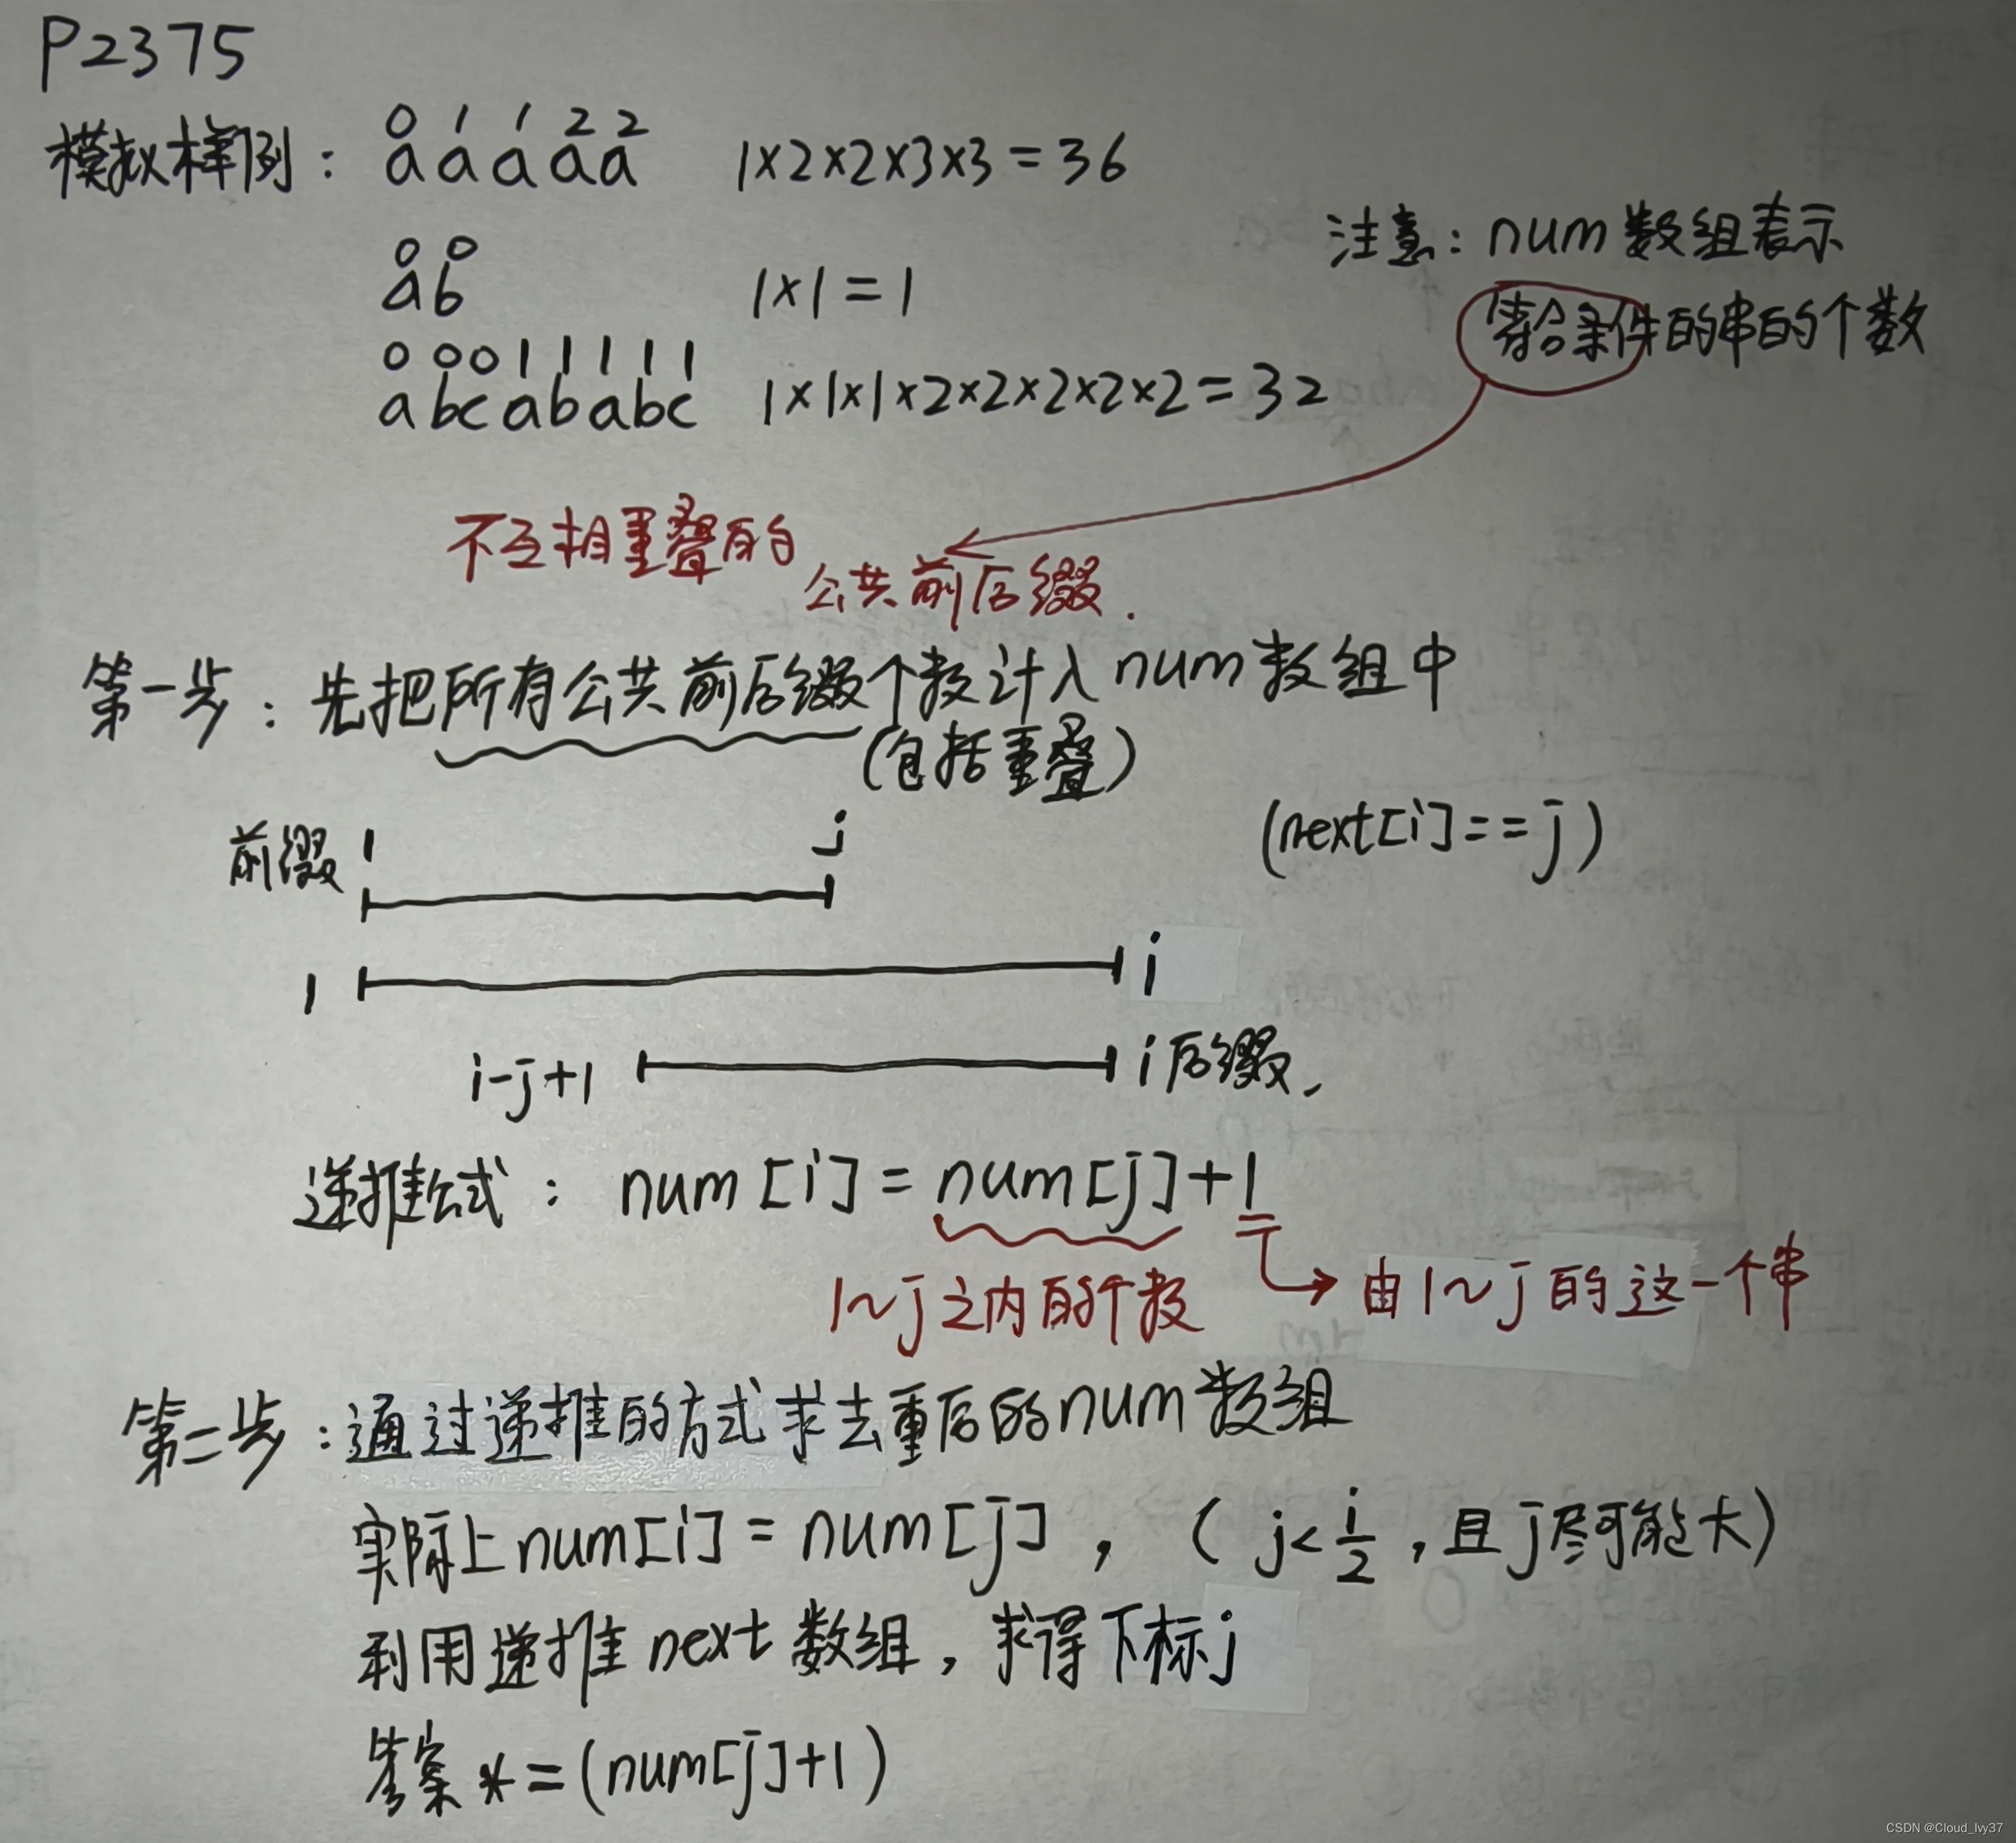 P2375
模拟样例：
0 1 1 2 2
a a a a a 1×2×2×3×3=36
0 0
a b 1×1=1
0 0 0 1 1 1 1 1
a b c a b a b c 1×1×1×2×2×2×2×2=32
注意：num数组表示
符合条件的串的个数
不互相重叠的
公共前后缀.
第一步：先把所有公共前后缀个数计入num数组中
(包括重叠)
前缀 1 j (next[i]==j)
1 i
i-j+1 i后缀,
递推公式： num[i]=num[j]+1
1~j之内的个数 由1~j的这一个串
第二步：通过递推的方式求去重后的num数组
实际上num[i]=num[j]，( j<i/2，且j尽可能大)
利用递推next数组，求得下标j
答案*=(num[j]+1)
CSDN @Cloud_Ivy37